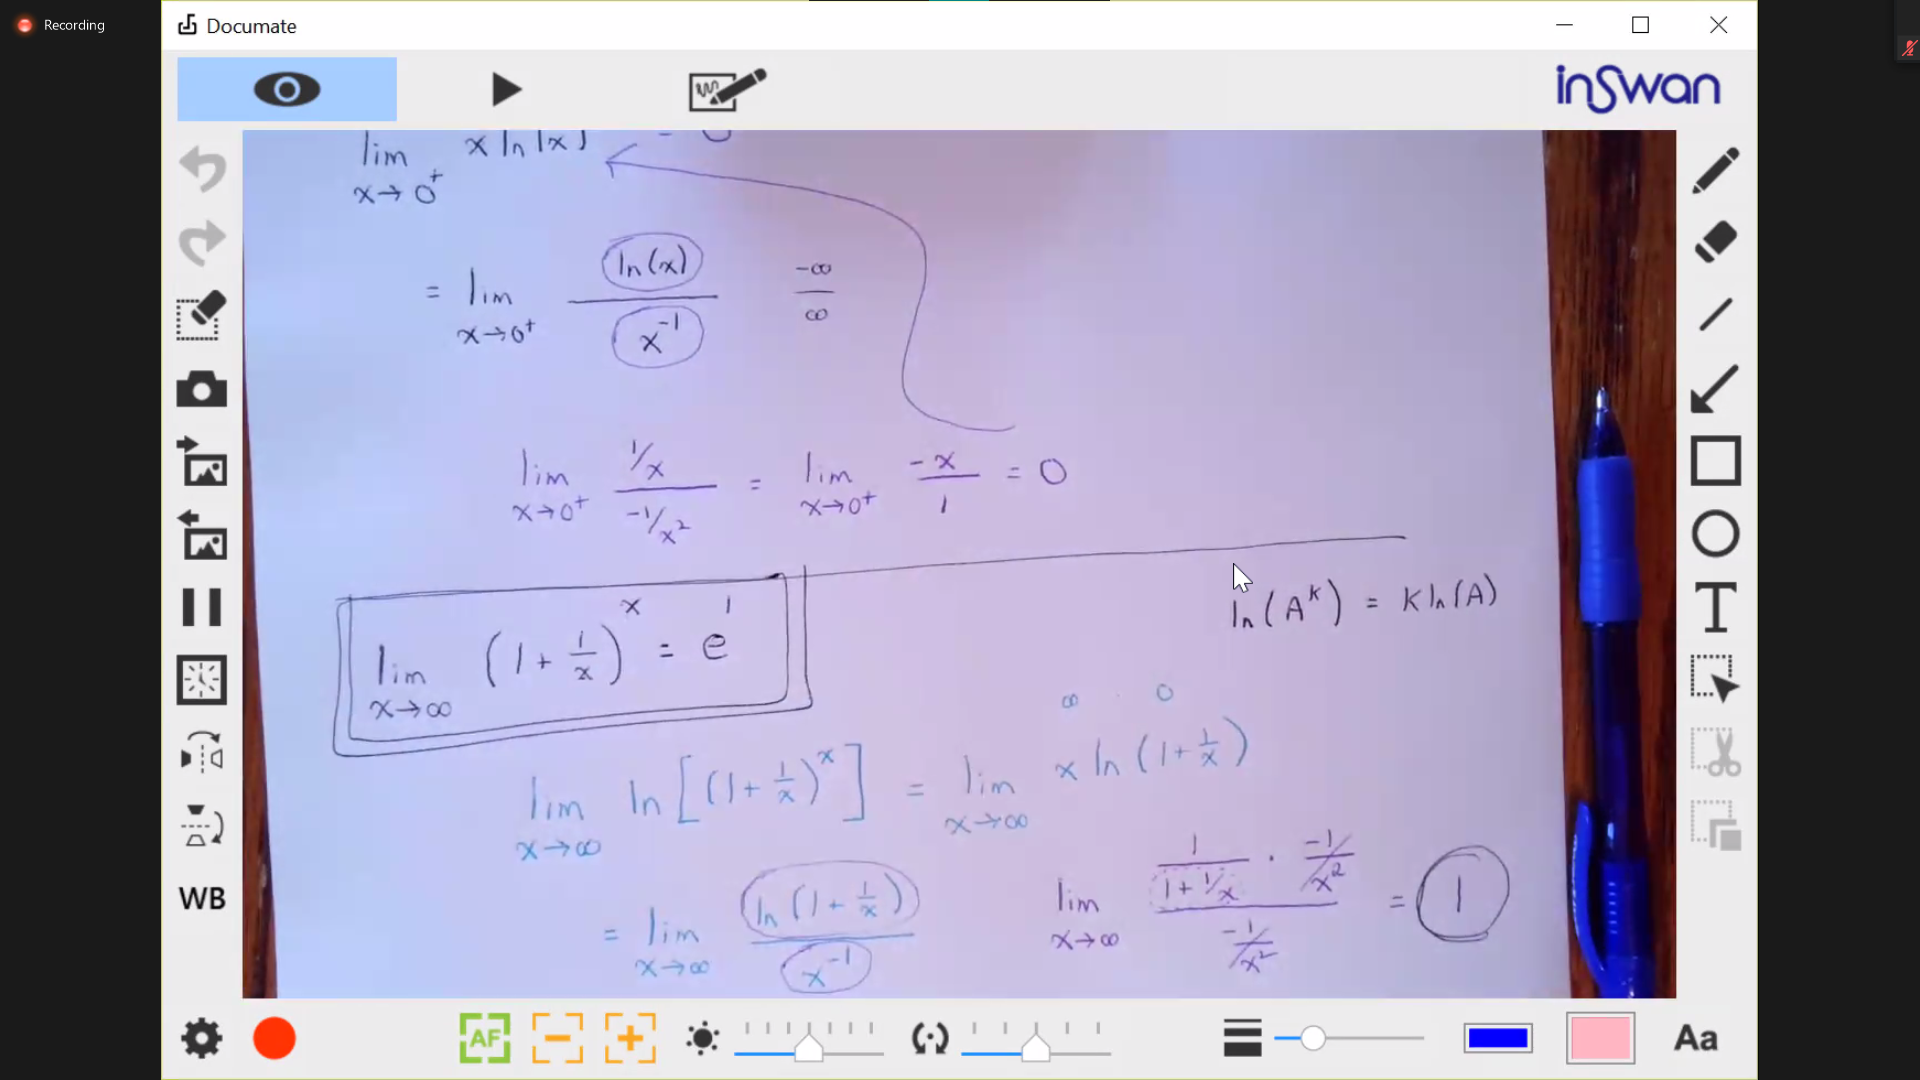 Recording
Documate
inSwan
lim x→0⁺ x ln(x) = 0
= lim x→0⁺ ln(x) / x⁻¹   -∞/∞
lim x→0⁺ (1/x) / (-1/x²) = lim x→0⁺ -x/1 = 0
ln(Aᵏ) = k ln(A)
lim x→∞ (1 + 1/x)ˣ = e¹
∞ · 0
lim x→∞ ln[(1 + 1/x)ˣ] = lim x→∞ x ln(1 + 1/x)
= lim x→∞ ln(1 + 1/x) / x⁻¹   lim x→∞ (1/(1 + 1/x) · -1/x²) / (-1/x²) = 1
T
WB
AF
Aa